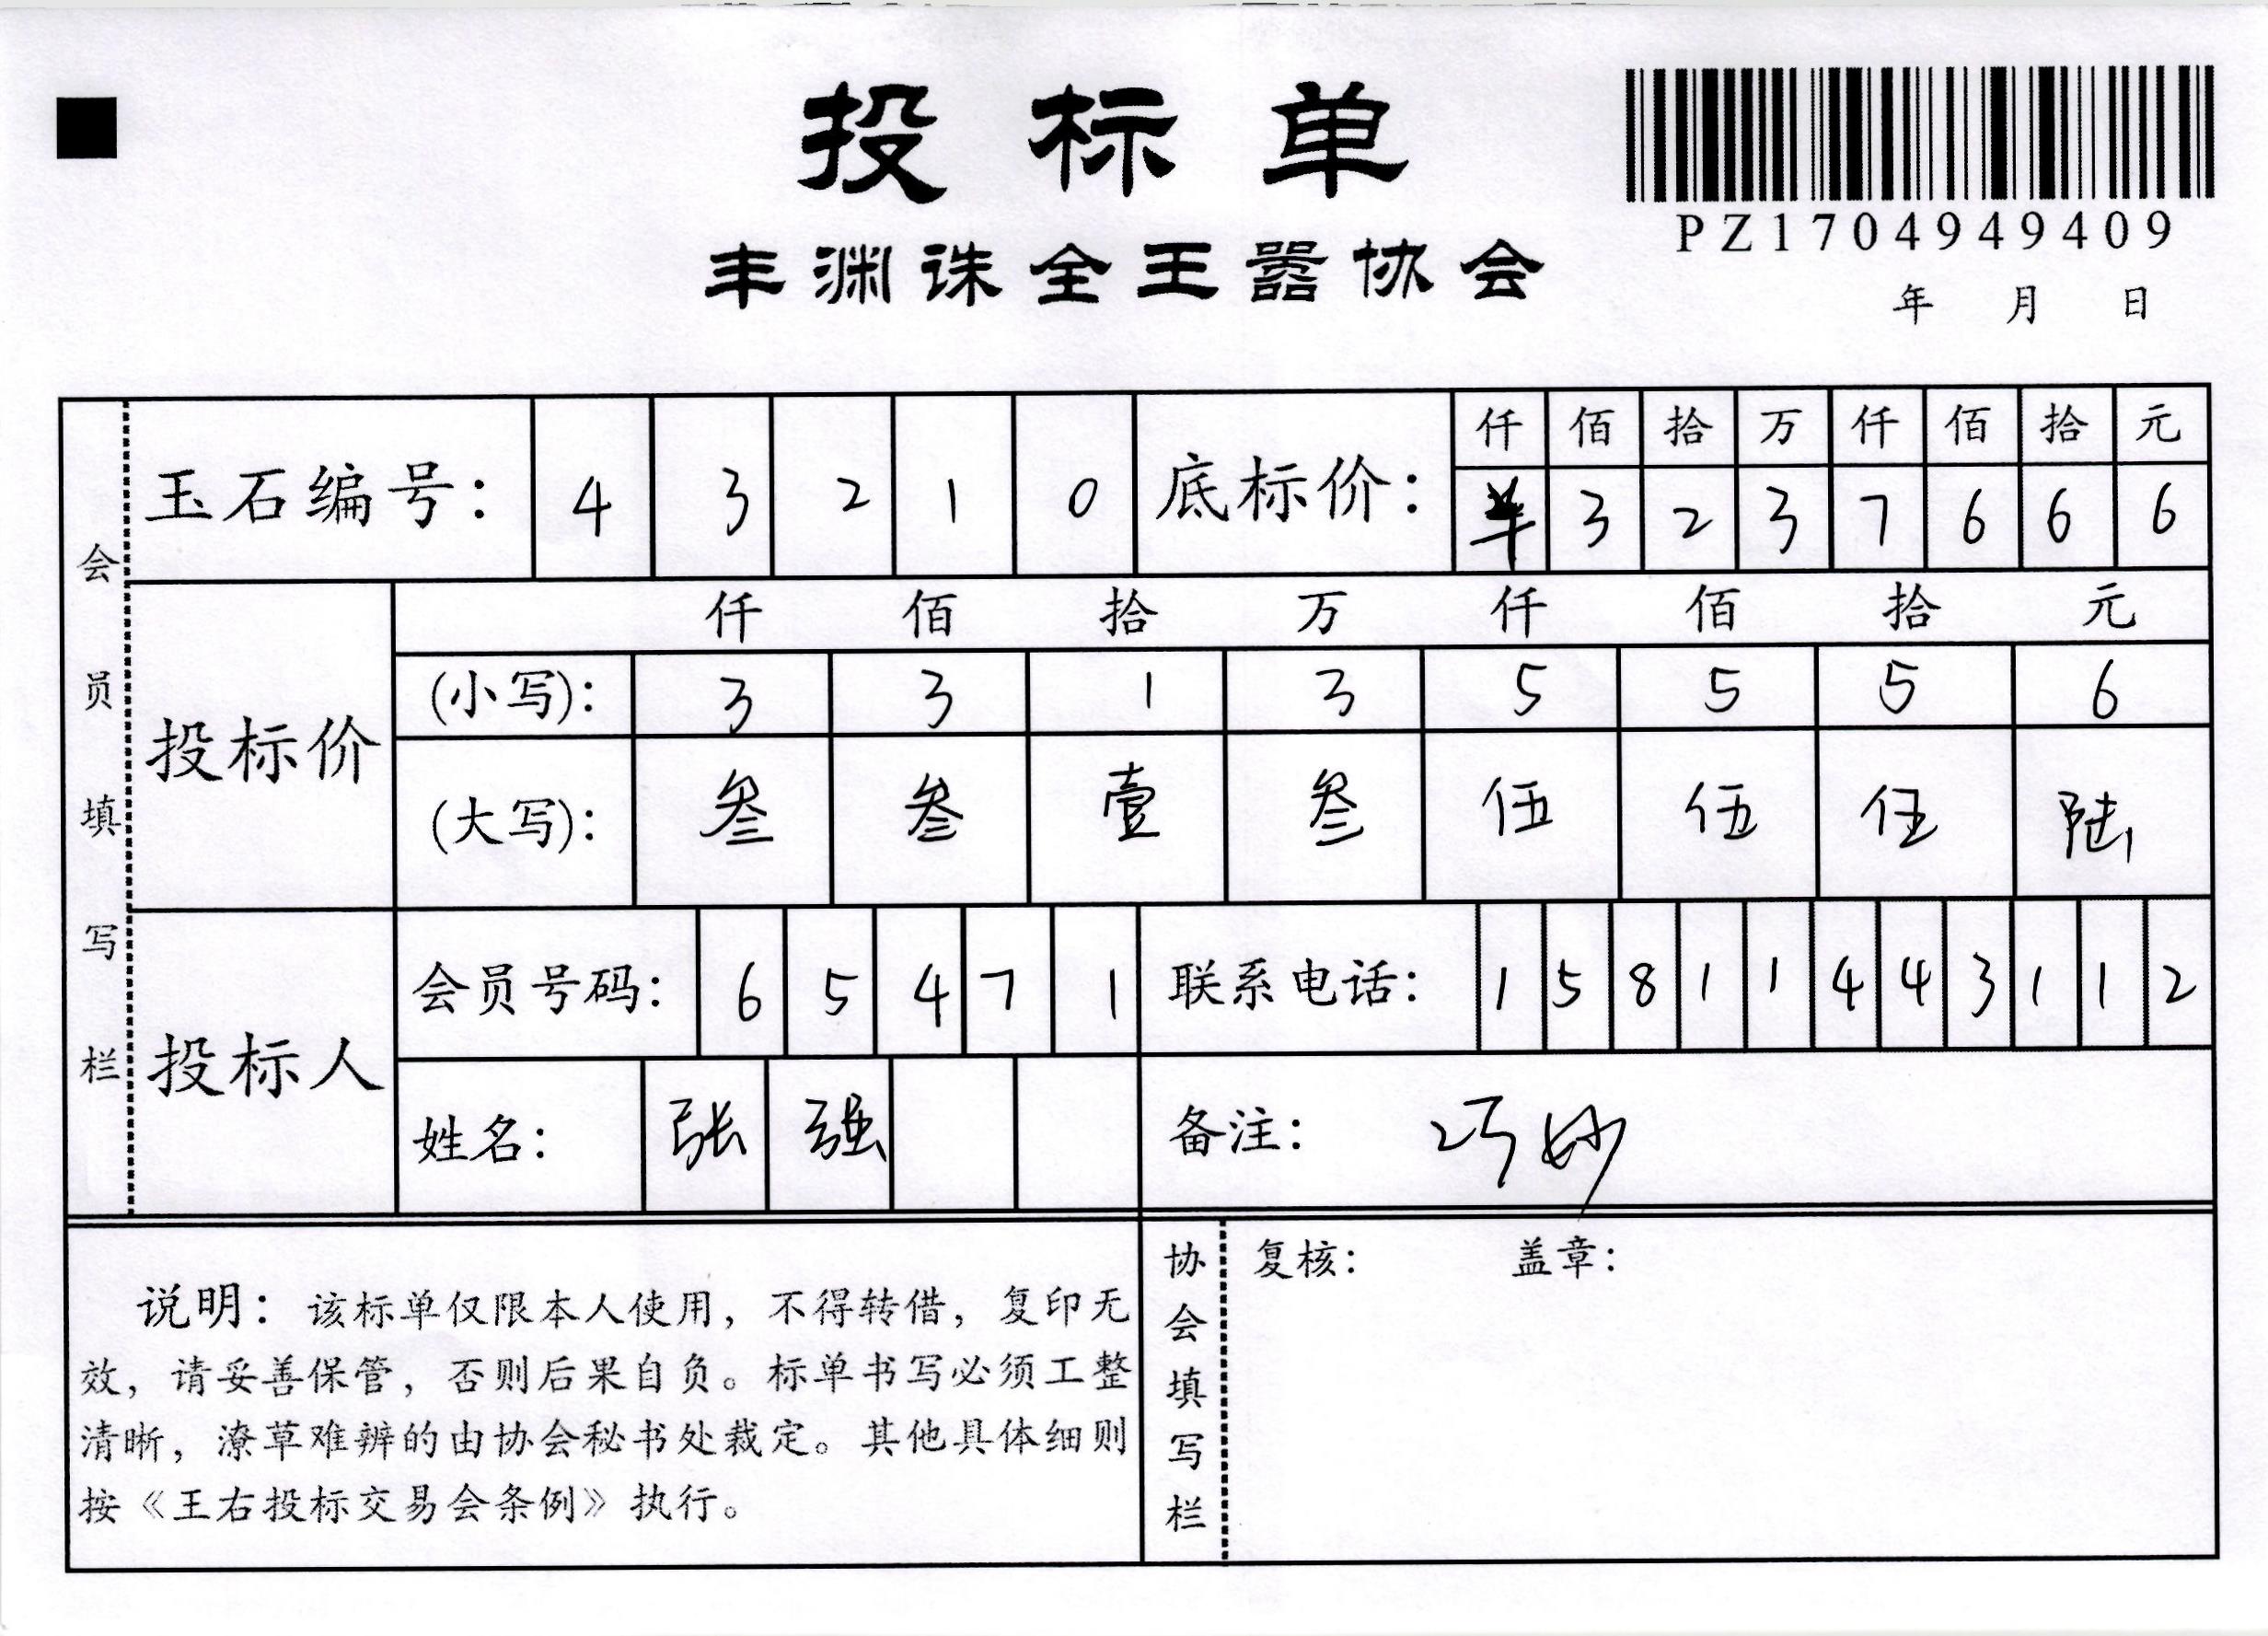 投标单
PZ1704949409
丰渊诛全王嚣协会
年 月 日
会员填写栏
玉石编号: 4 3 2 1 0
底标价: 仟 佰 拾 万 仟 佰 拾 元
3 2 3 7 6 6 6
投标价
仟 佰 拾 万 仟 佰 拾 元
(小写): 3 3 1 3 5 5 5 6
(大写): 叁 叁 壹 叁 伍 伍 伍 陆
投标人
会员号码: 6 5 4 7 1
联系电话: 1 5 8 1 1 4 4 3 1 1 2
姓名: 张 强
备注: 巧妙
说明: 该标单仅限本人使用, 不得转借, 复印无
效, 请妥善保管, 否则后果自负。标单书写必须工整
清晰, 潦草难辨的由协会秘书处裁定。其他具体细则
按《王右投标交易会条例》执行。
协会填写栏
复核: 盖章: